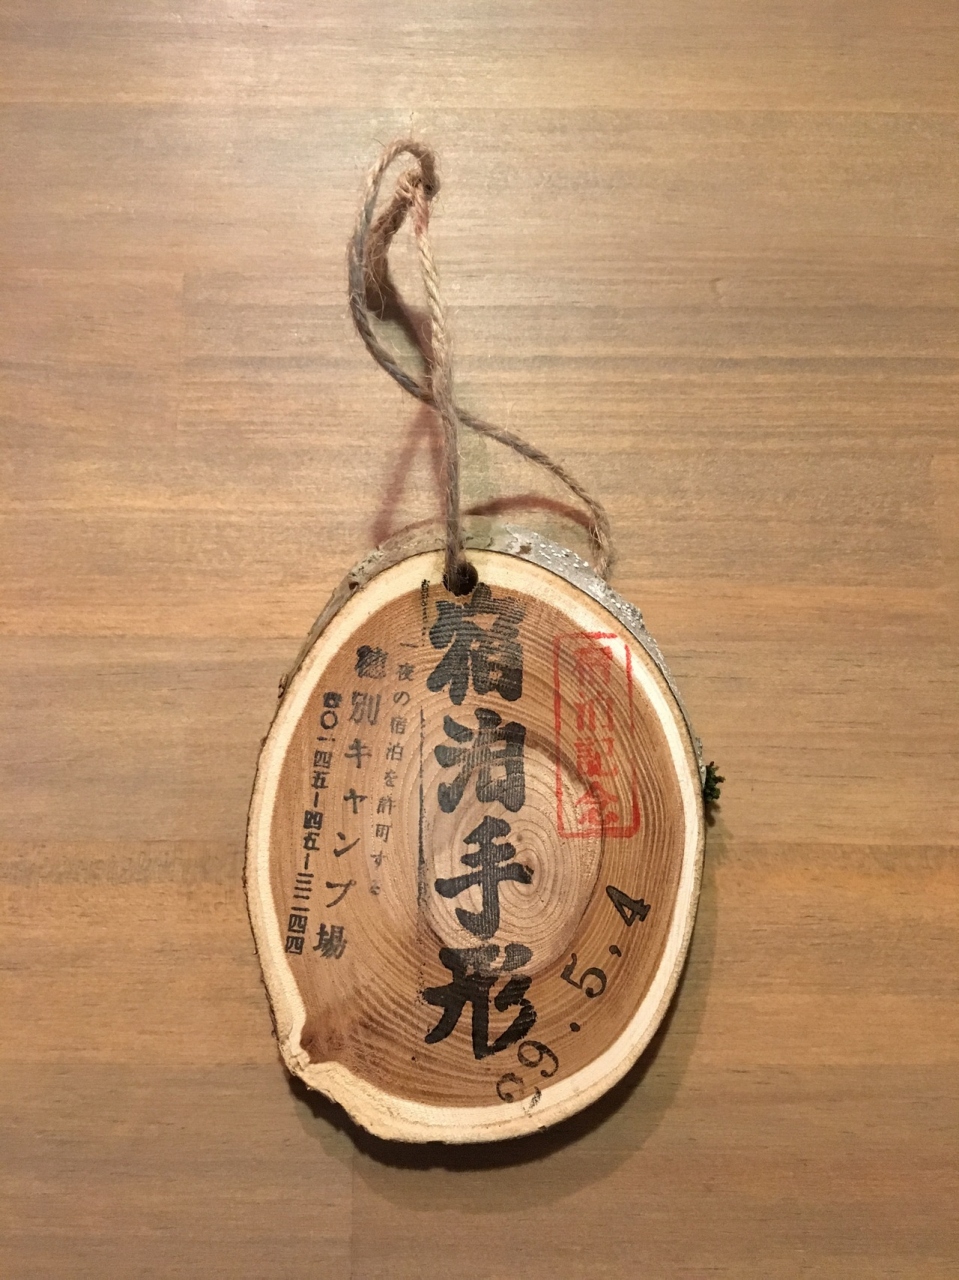 宿泊記念
宿泊手形
一夜の宿泊を許可する
穂別キャンプ場
☎〇一四五ー四五ー三二四四
29.5.4